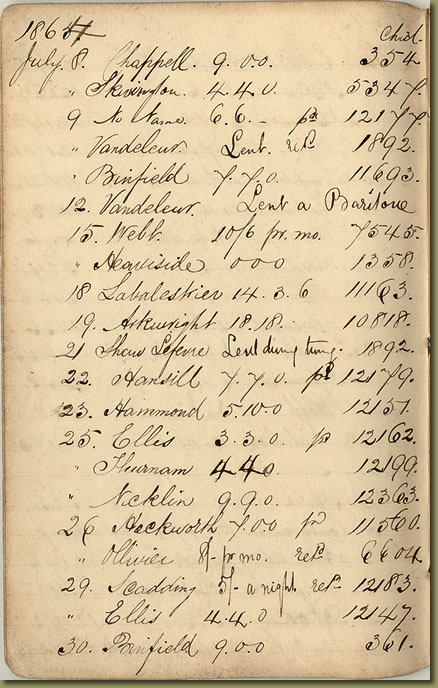 Chid.
July 8. Chappell. 9.0.0. 354
" Skevington. 4.4.0. 5347.
9 No Name. 6.6.- pd 12177.
" Vandeleur. Lent. retd 1892.
" Binfield 7.7.0. 11693.
12. Vandeleur. Lent a Baritone
15. Webb. 10/6 pr. mo. 7545.
" Heaviside 0 0 0 1358.
18 Labalestrier 14.3.6 11163.
19. Arkwright 18.18. 10818.
21 Shaw Lefevre Lent during tuning. 1892.
22. Hansill 7.7.0. pd 12179.
23. Hammond 5.10.0 12151.
25. Ellis 3.3.0 pd 12162.
" Thurnam 4.4.0. 12199.
" Nicklin 9.9.0. 12363.
26 Heckworth 7.0.0 pd 11560.
" Ollivier 8/- pr mo. retd 6604.
29. Scadding 5/- a night retd 12183.
" Ellis 4.4.0 12147.
30. Binfield 9.0.0 361.